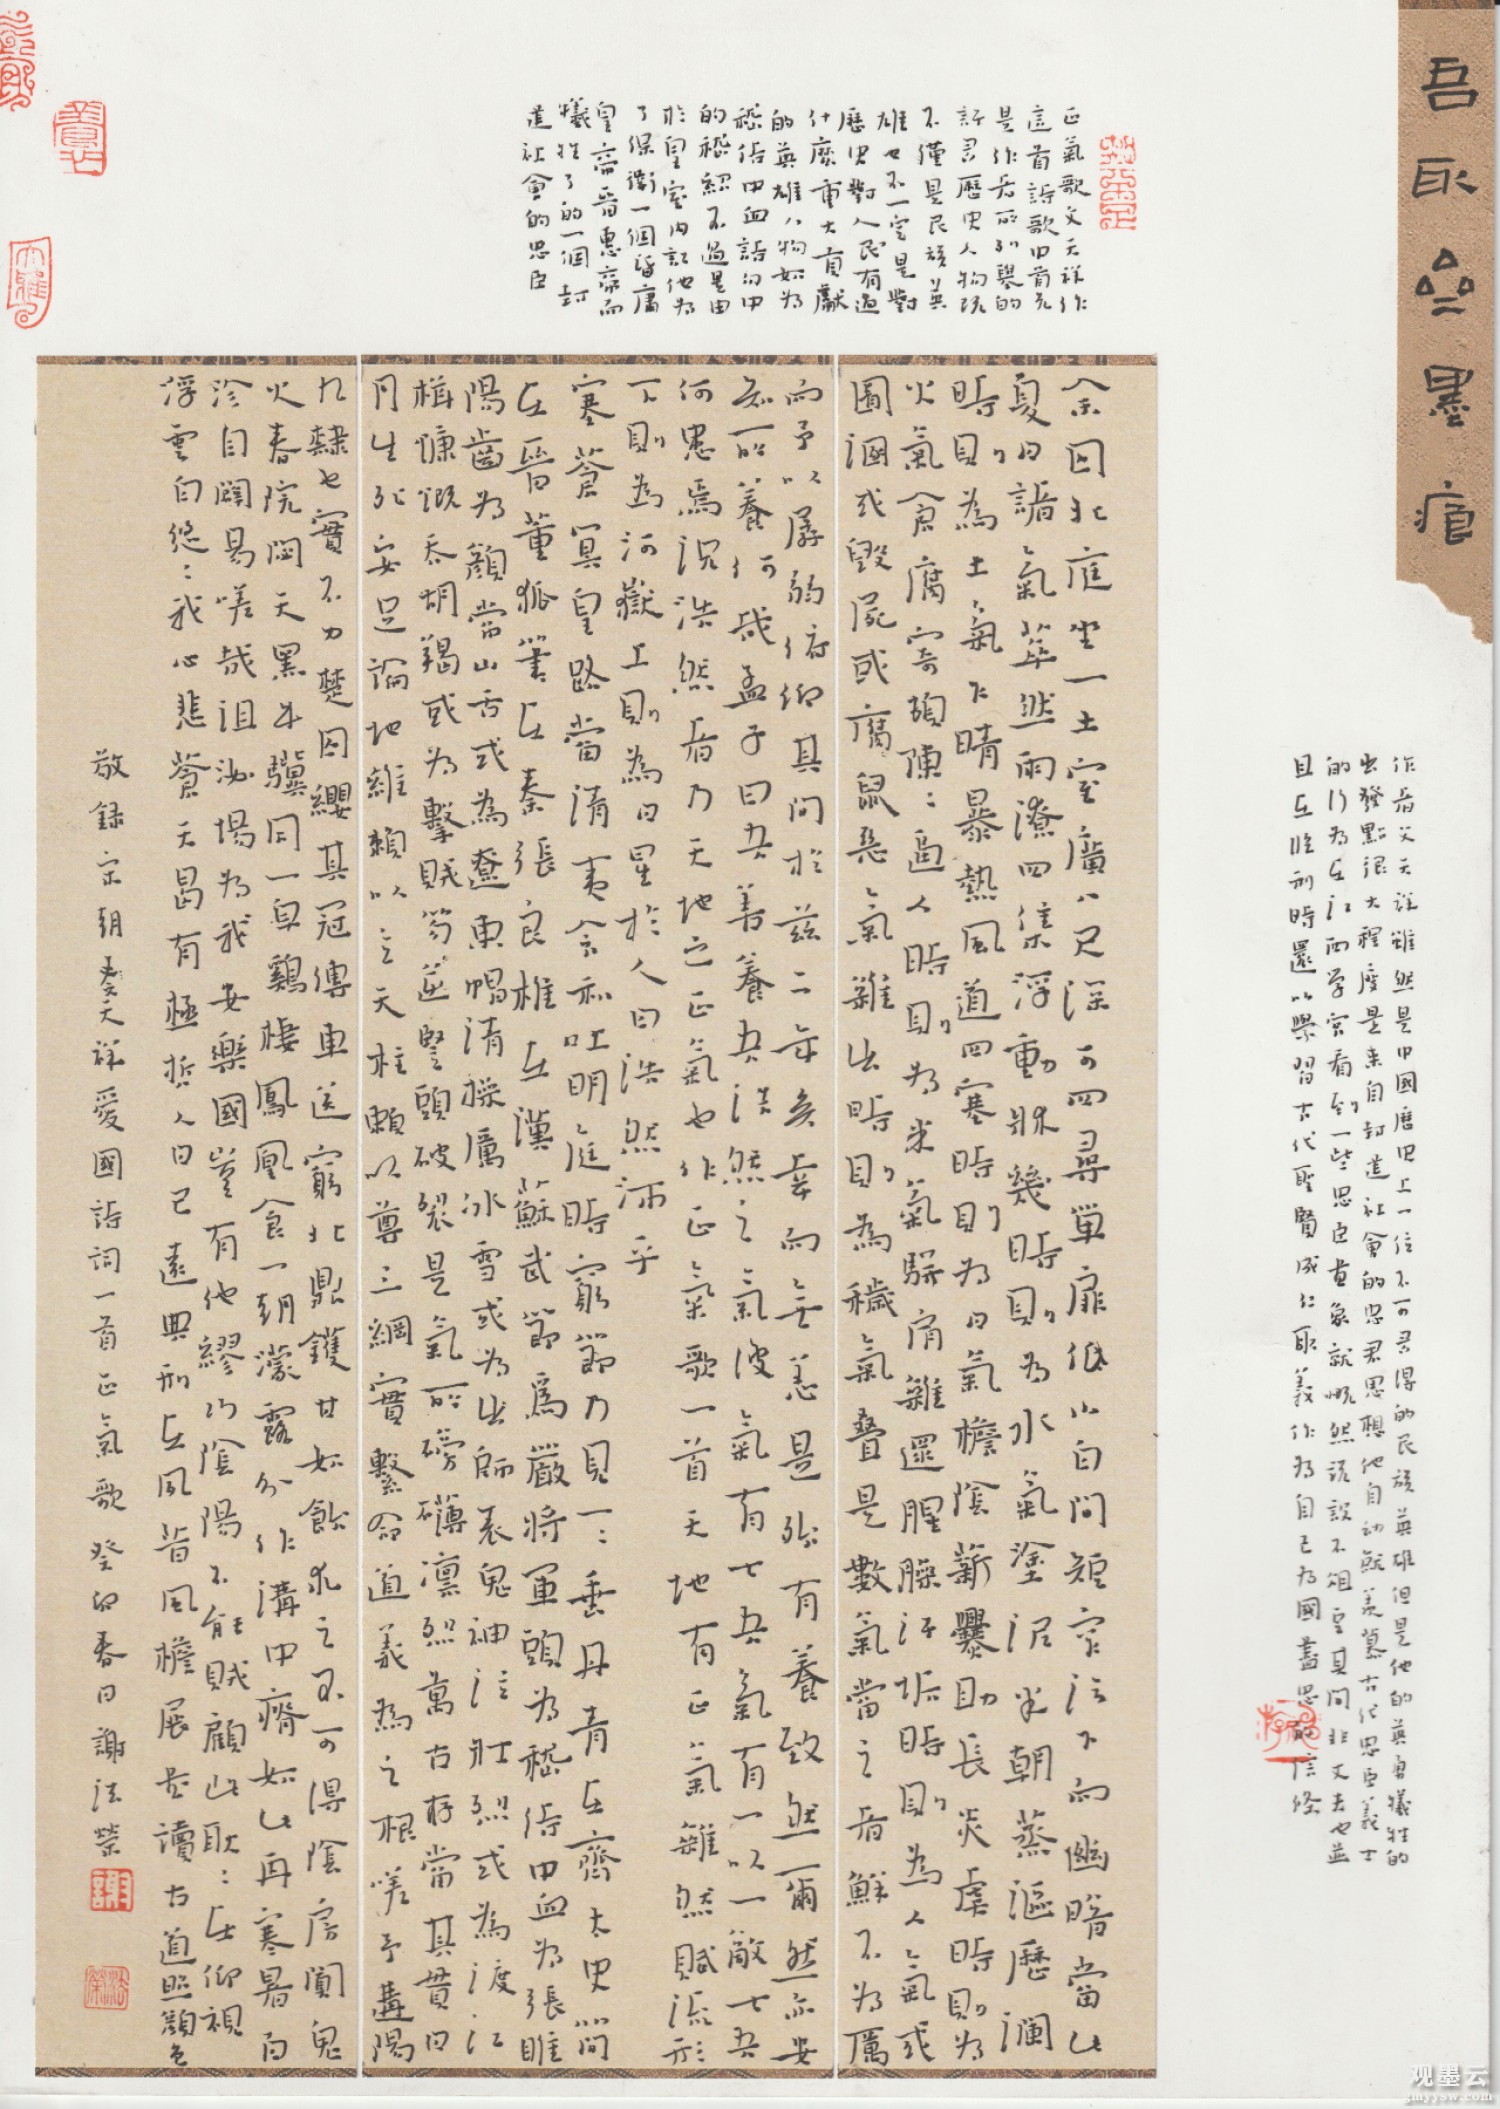 吾取墨痕
作者文天祥雖然是中國歷史上一位不可多得的民族英雄但是他的英勇犧牲的
出發點很大程度是來自封建社會的忠君思想他自幼就羨慕古代忠臣義士
的行為在江西學宮看到一些忠臣畫象就慨然說不俎豆其間非丈夫也並
且在臨刑時還以學習古代聖賢成仁取義作為自己為國盡忠的信條
正氣歌文天祥作
這首詩歌中首先
是作者所列舉的
許多歷史人物既
不僅是民族英
雄也不一定是對
歷史對人民有過
什麼重大貢獻
的英雄人物如為
嵇侍中血詩句中
的嵇紹不過是由
於皇室內訌他為
了保衛一個昏庸
皇帝晉惠帝而
犧牲了的一個封
建社會的忠臣
余囚北庭坐一土室廣八尺深可四尋單扉低小白間短窄汙下而幽暗當此
夏日諸氣萃然雨潦四集浮動牀幾時則為水氣塗泥半朝蒸漚歷瀾
時則為土氣乍晴暴熱風道四塞時則為日氣檐陰薪爨助長炎虐時則為
火氣倉腐寄頓陳:逼人時則為米氣駢肩雜遝腥臊汙垢時則為人氣或
圊溷或毀屍或腐鼠惡氣雜出時則為穢氣疊是數氣當之者鮮不為厲
而予以孱弱俯仰其間於茲二年矣幸而無恙是殆有養致然爾然亦安
知所養何哉孟子曰吾善養吾浩然之氣彼氣有七吾氣有一以一敵七吾
何患焉況浩然者乃天地之正氣也作正氣歌一首天地有正氣雜然賦流形
下則為河嶽上則為日星於人曰浩然沛乎
塞蒼冥皇路當清夷含和吐明庭時窮節乃見一:垂丹青在齊太史簡
在晉董狐筆在秦張良椎在漢蘇武節爲嚴將軍頭為嵇侍中血為張睢
陽齒為顏常山舌或為遼東帽清操厲冰雪或為出師表鬼神泣壯烈或為渡江
楫慷慨吞胡羯或為擊賊笏逆豎頭破裂是氣所磅礴凛烈萬古存當其貫日
月生死安足論地維賴以立天柱賴以尊三綱實繫命道義為之根嗟予遘陽
九隸也實不力楚囚纓其冠傳車送窮北鼎鑊甘如飴求之不可得陰房闃鬼
火春院閟天黑牛驥同一皁鷄棲鳳凰食一朝濛露分作溝中瘠如此再寒暑百
沴自闢易嗟哉沮洳場為我安樂國豈有他繆巧陰陽不能賊顧此耿:在仰視
浮雲白悠:我心悲蒼天曷有極哲人日已遠典刑在夙昔風檐展書讀古道照顏色
敬録宗朝文天祥愛國詩詞一首正氣歌癸卯春日謝法榮
观墨云
gmyysw.com